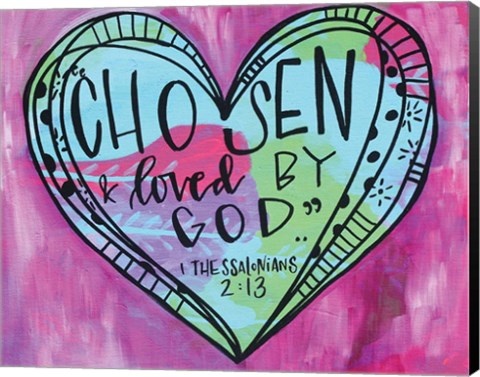 "CHOSEN
& loved BY
GOD"
1 THESSALONIANS
2:13